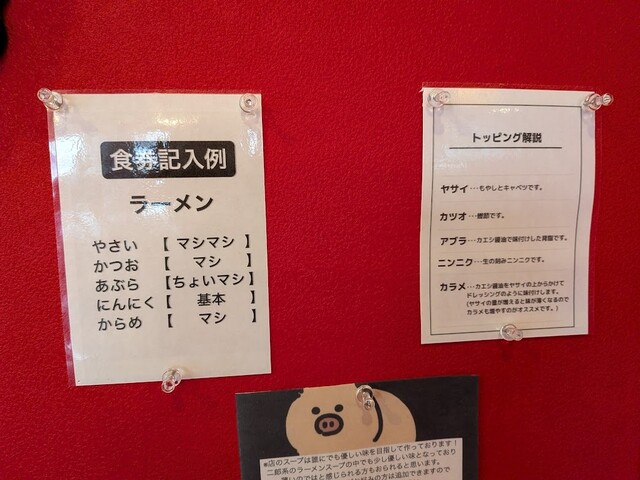 食券記入例
ラーメン
やさい 【 マシマシ 】
かつお 【 マシ 】
あぶら 【ちょいマシ】
にんにく【 基本 】
からめ 【 マシ 】
トッピング解説
ヤサイ･･･もやしとキャベツです。
カツオ･･･鰹節です。
アブラ･･･カエシ醤油で味付けした背脂です。
ニンニク･･･生の刻みニンニクです。
カラメ･･･カエシ醤油をヤサイの上からかけて
ドレッシングのように味付けします。
(ヤサイの量が増えると味が薄くなるので
カラメも増やすのがオススメです。)
店のスープは誰にでも優しい味を目指して作っております！
二郎系のラーメンスープの中でも少し優しい味となっており
のではと感じられる方もおられると思います。
の方は追加できますので